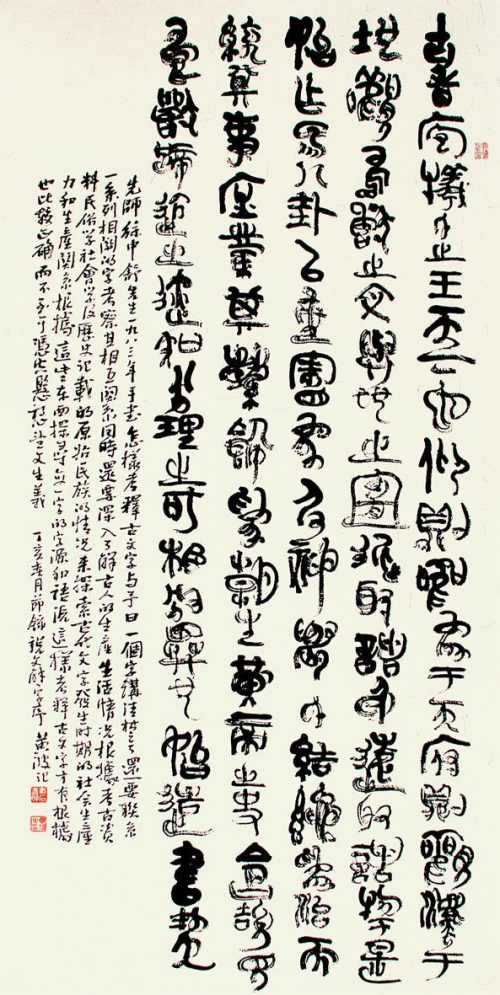 古者庖犧氏之王天下也仰則觀象于天俯則觀法于
地觀鳥獸之文與地之宜近取諸身遠取諸物于是
始作易八卦以垂憲象及神農氏結繩為治而
統其事庶業其繁飾偽萌生黃帝之史倉頡見
鳥獸蹄迒之迹知分理之可相別異也初造書契
先師徐中舒先生一九八三年于書怎樣考釋古文字与予曰一個字講清楚了還要聯系
一系列相關的字考察其相互關系同時還要深入了解古人的生產生活情况根據考古資
料民俗學社會學及歷史記載的原始民族的情况來探索古代文字發生時期的社會生產
力和生產關系根據這些東西探尋每一字的字源和語源這樣考釋古文字才有根據
也比較正確而不至于憑空懸想望文生義 丁亥春月節錄說文解字序 黃波記